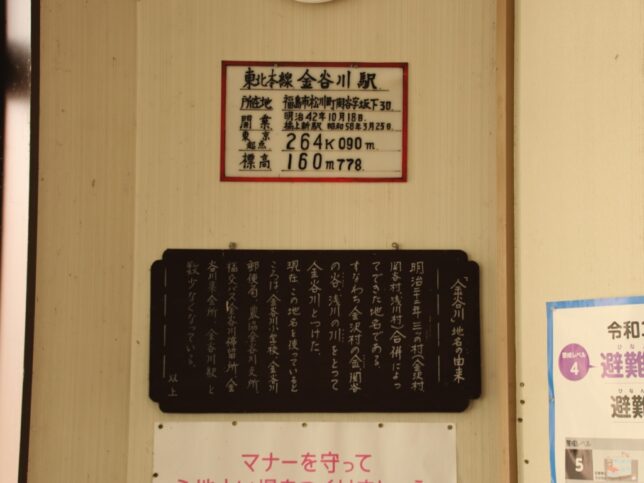 東北本線 金谷川駅
所在地 福島市松川町関谷字坂下30
開業 明治42年10月18日
橋上新駅 昭和58年3月25日
東京起点 264K090m
標高 160m778
「金谷川」地名の由来
明治二十二年、三ッの村(金沢村
関谷村、浅川村)合併によっ
てできた地名である。
すなわち金沢村の金、関谷
の谷、浅川の川をとって
金谷川とつけた。
現在、この地名を使っていると
ころは、金谷川小学校、金谷川
郵便局、農協金谷川支所
福交バス金谷川停留所、金
谷川集会所、金谷川駅と
数少なくなっている。
以上
マナーを守って
令和
警戒レベル
4
避難
避難
警戒レベル
5